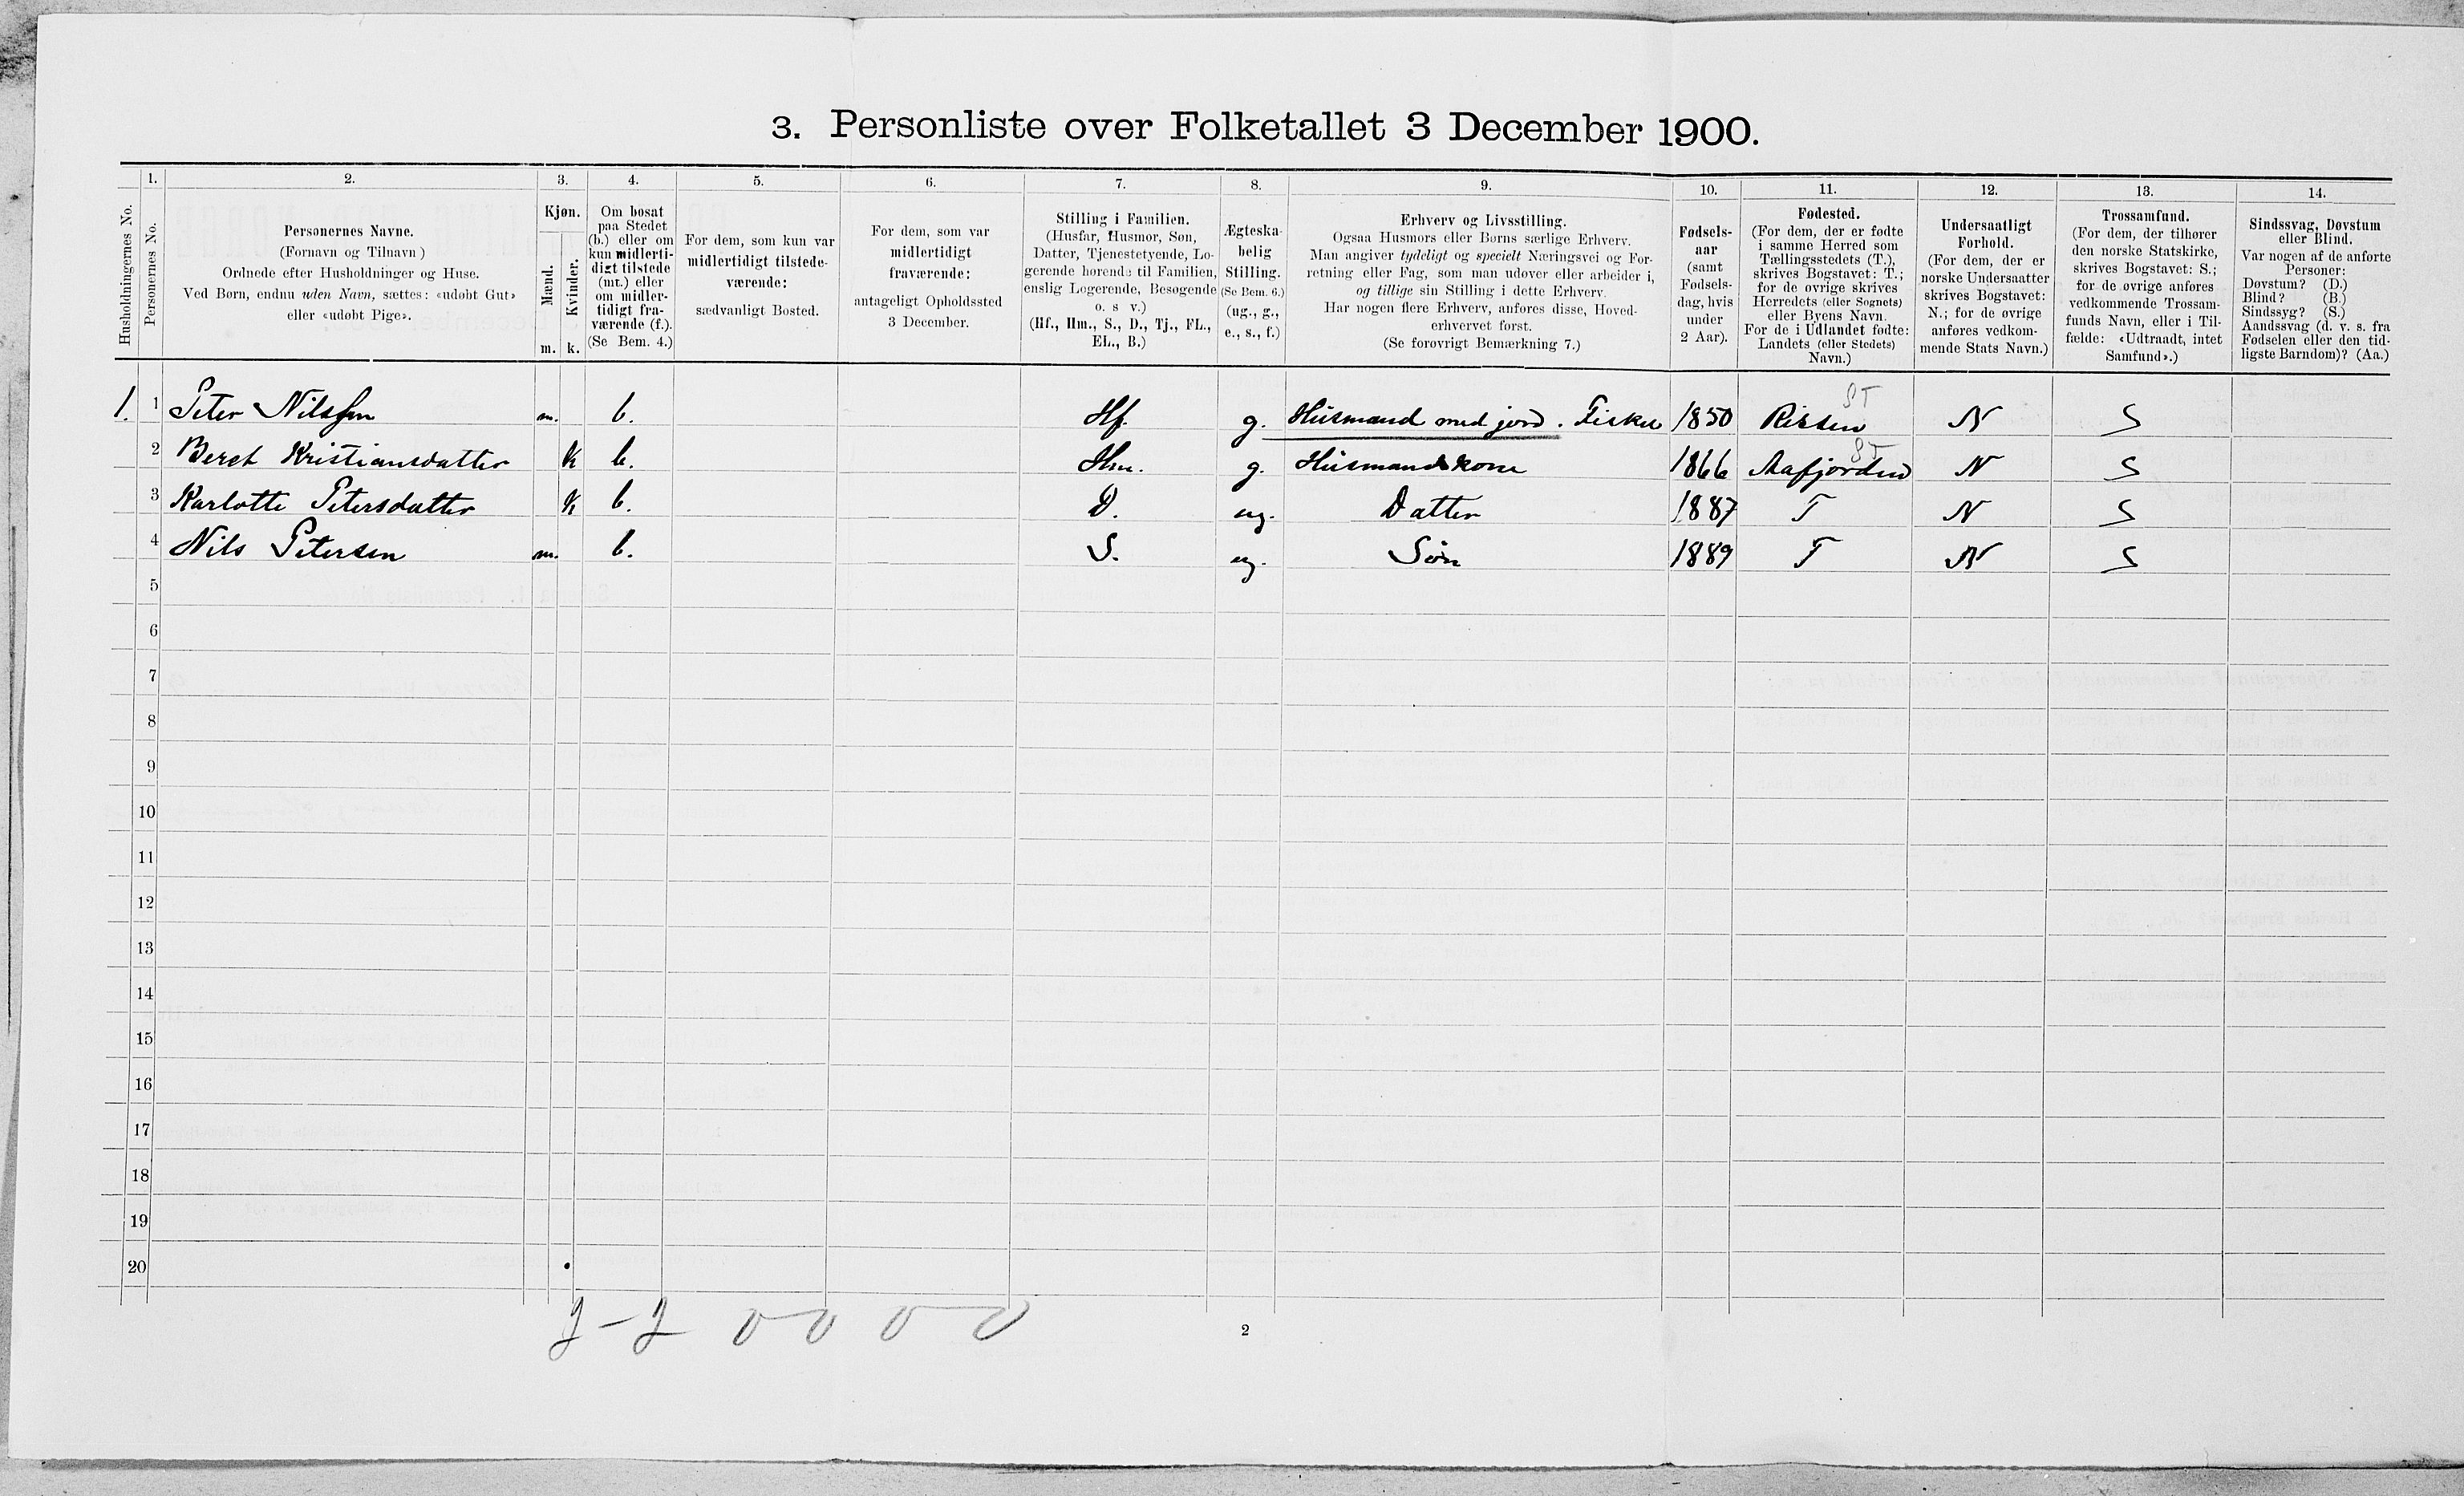 3. Personliste over Folketallet 3 December 1900.
1. 2. 3. 4. 5. 6. 7. 8. 9. 10. 11. 12. 13. 14.
Husholdningernes No.
Personernes No.
Personernes Navne.
(Fornavn og Tilnavn)
Ordnede efter Husholdninger og Huse.
Ved Børn, endnu uden Navn, sættes: «udøbt Gut»
eller «udøbt Pige».
Kjøn.
Mænd.
Kvinder.
m. k.
Om bosat
paa Stedet
(b.) eller om
kun midlerti-
digt tilstede
(mt.) eller
om midler-
tidigt fra-
værende (f.).
(Se Bem. 4.)
For dem, som kun var
midlertidigt tilstede-
værende:
sædvanligt Bosted.
For dem, som var
midlertidigt
fraværende:
antageligt Opholdssted
3 December.
Stilling i Familien.
(Husfar, Husmor, Søn,
Datter, Tjenestetyende, Lo-
gerende hørende til Familien,
enslig Logerende, Besøgende
o. s v.)
(Hf., Hm., S., D., Tj., FL.,
EL., B.)
Ægteska-
belig
Stilling.
(Se Bem. 6.)
(ug., g.,
e., s., f.)
Erhverv og Livsstilling.
Ogsaa Husmors eller Børns særlige Erhverv.
Man angiver tydeligt og specielt Næringsvei og For-
retning eller Fag, som man udøver eller arbeider i,
og tillige sin Stilling i dette Erhverv.
Har nogen flere Erhverv, anføres disse, Hoved-
erhvervet først.
(Se forøvrigt Bemærkning 7.)
Fødsels-
aar
(samt
Fødsels-
dag, hvis
under
2 Aar).
Fødested.
(For dem, der er fødte
i samme Herred som
Tællingsstedets (T.),
skrives Bogstavet: T.;
for de øvrige skrives
Herredets (eller Sognets)
eller Byens Navn.
For de i Udlandet fødte:
Landets (eller Stedets)
Navn.)
Undersaatligt
Forhold.
(For dem, der er
norske Undersaatter
skrives Bogstavet:
N.; for de øvrige
anføres vedkom-
mende Stats Navn.)
Trossamfund.
(For dem, der tilhører
den norske Statskirke,
skrives Bogstavet: S.;
for de øvrige anføres
vedkommende Trossam-
funds Navn, eller i Til-
fælde: «Udtraadt, intet
Samfund».)
Sindssvag, Døvstum
eller Blind.
Var nogen af de anførte
Personer:
Døvstum? (D.)
Blind? (B.)
Sindssyg? (S.)
Aandssvag (d. v. s. fra
Fødselen eller den tid-
ligste Barndom)? (Aa.)
ST
1. 1 Peter Nilssen m. b. Hf. g. Husmand med jord. Fisker 1850 Rissen N S
ST
2 Beret Kristiansdatter k b. Hm. g. Husmandskone 1866 Aafjorden N S
3 Karlotte Petersdatter k b. D. ug. Datter 1887 T N S
4 Nils Petersen m. b. S. ug. Søn 1889 T N S
5
6
7
8
9
10
11
12
13
14
15
16
17
18
19
20
2